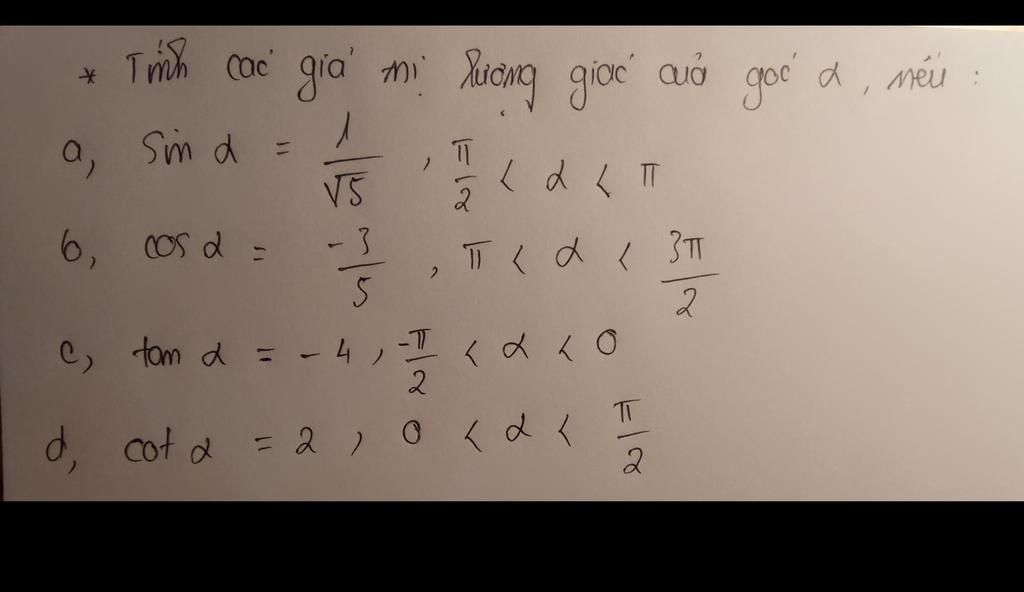 * Tính các giá trị lượng giác của góc α, nếu :
a, sin α = 1/√5 , π/2 < α < π
b, cos α = -3/5 , π < α < 3π/2
c, tan α = -4 , -π/2 < α < 0
d, cot α = 2 , 0 < α < π/2